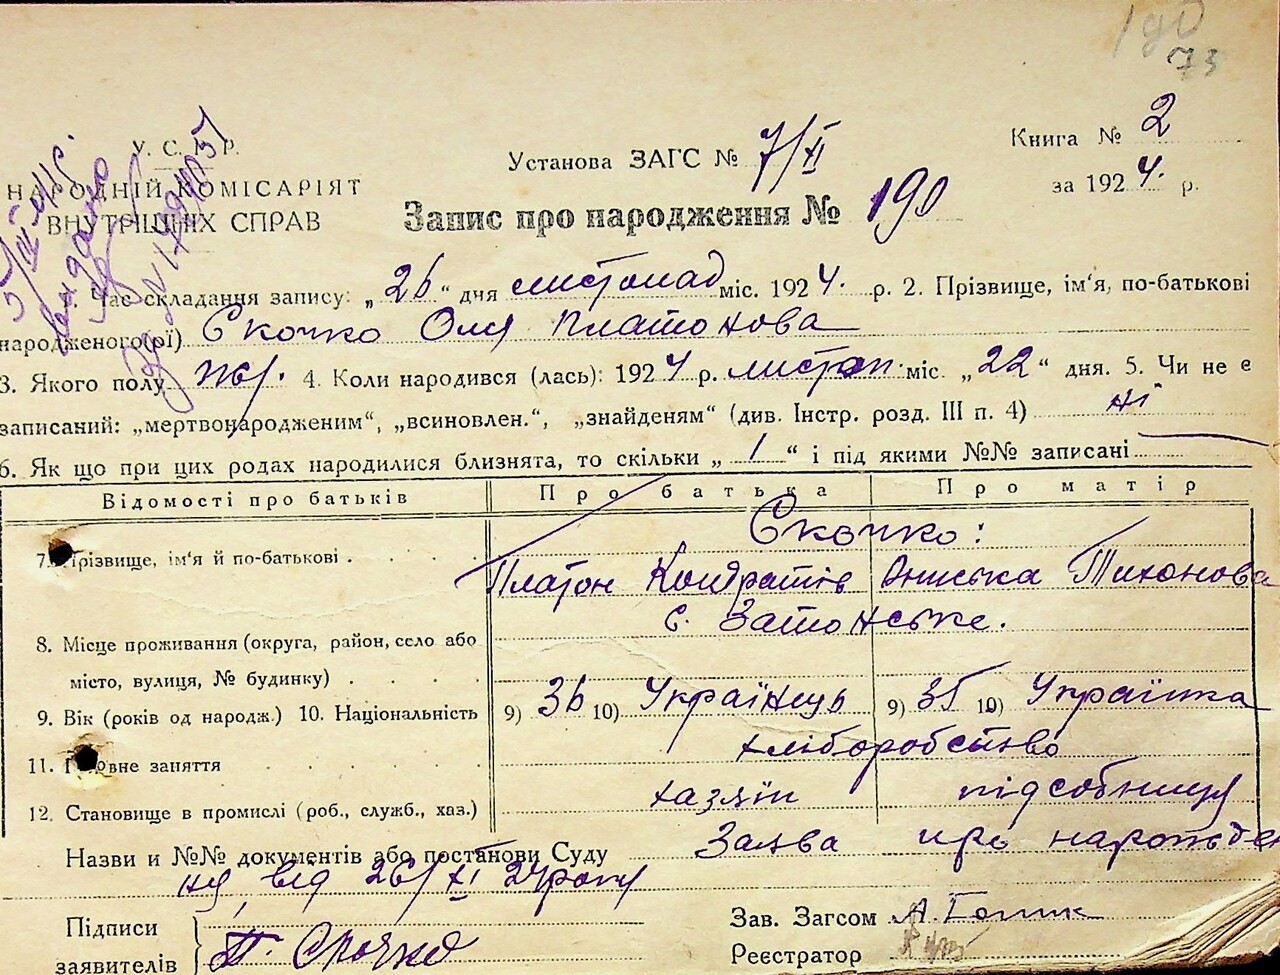 190
73
У. С. Р. Р.
НАРОДНІЙ КОМІСАРІЯТ
ВНУТРІШНІХ СПРАВ
Установа ЗАГС № 7/XI
Книга № 2
за 1924. р.
Запис про народження № 190
Час складання запису: „26“ дня листопад міс. 1924. р. 2. Прізвище, ім'я, по-батькові
народженого(ої) Скочко Оля Платонова
3. Якого полу жі. 4. Коли народився (лась): 1924 р. листоп. міс. „22“ дня. 5. Чи не є
записаний: „мертвонародженим“, „всиновлен.“, „знайденям“ (див. Інстр. розд. III п. 4) ні
6. Як що при цих родах народилися близнята, то скільки „1“ і під якими №№ записані
Відомості про батьків Про батька Про матір
Скочко:
7. Прізвище, ім'я й по-батькові
Платон Кондратів Ониська Тихонова
с. Затонське.
8. Місце проживання (округа, район, село або
місто, вулиця, № будинку)
9. Вік (років од народж.) 10. Національність 9) 36 10) Українець 9) 35 10) Українка
хліборобство
11. Головне заняття
12. Становище в промислі (роб., служб., хаз.) хазяїн підсобниця
Назви и №№ документів або постанови Суду Заява про народжен
ня від 26/XI 24 року
Підписи
заявителів П. Скочко
Зав. Загсом А.
Реєстратор